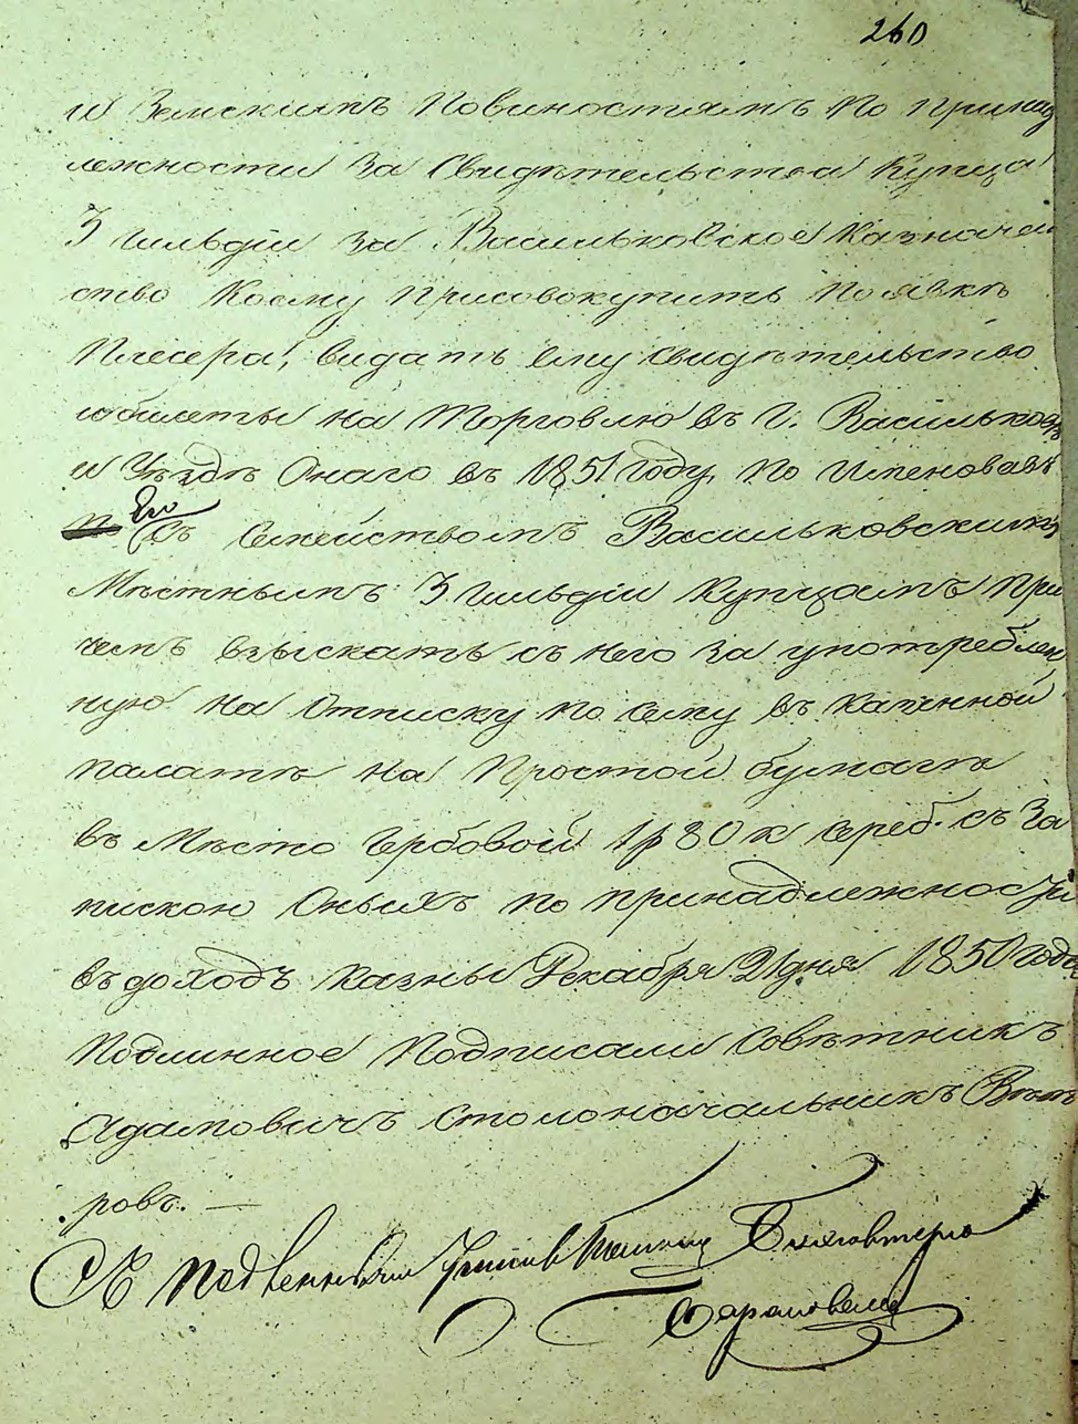 260
и Земскимъ Повиностямъ по Принад
лежности за Свидѣтельства Купца
3 гильдіи за Васильковское Казначей
ство Коему присовокупить по явкѣ
Плесера, видать ему свидѣтельство
и билеты на Торговлю въ Г. Васильковѣ
и Уѣздѣ Онаго въ 1851 году, по Именовавъ
Его
съ Семействомъ Васильковскимъ
Мѣстнымъ 3 гильдіи Купцомъ При
чемъ взыскать съ него за употреблен
ную на Отписку по сему въ Казенной
палатѣ на Простой бумагѣ
въ Мѣсто Гербовой 1 р 80 к сереб. съ За
пискою Оныхъ по принадлежности
въ доходъ Казны Декабря 21 дня 1850 года
Подлинное Подписали Совѣтникъ
Адамовичъ Столоначальникъ Вѣт
ровъ. —
Съ Подленнымъ Бухгалтера